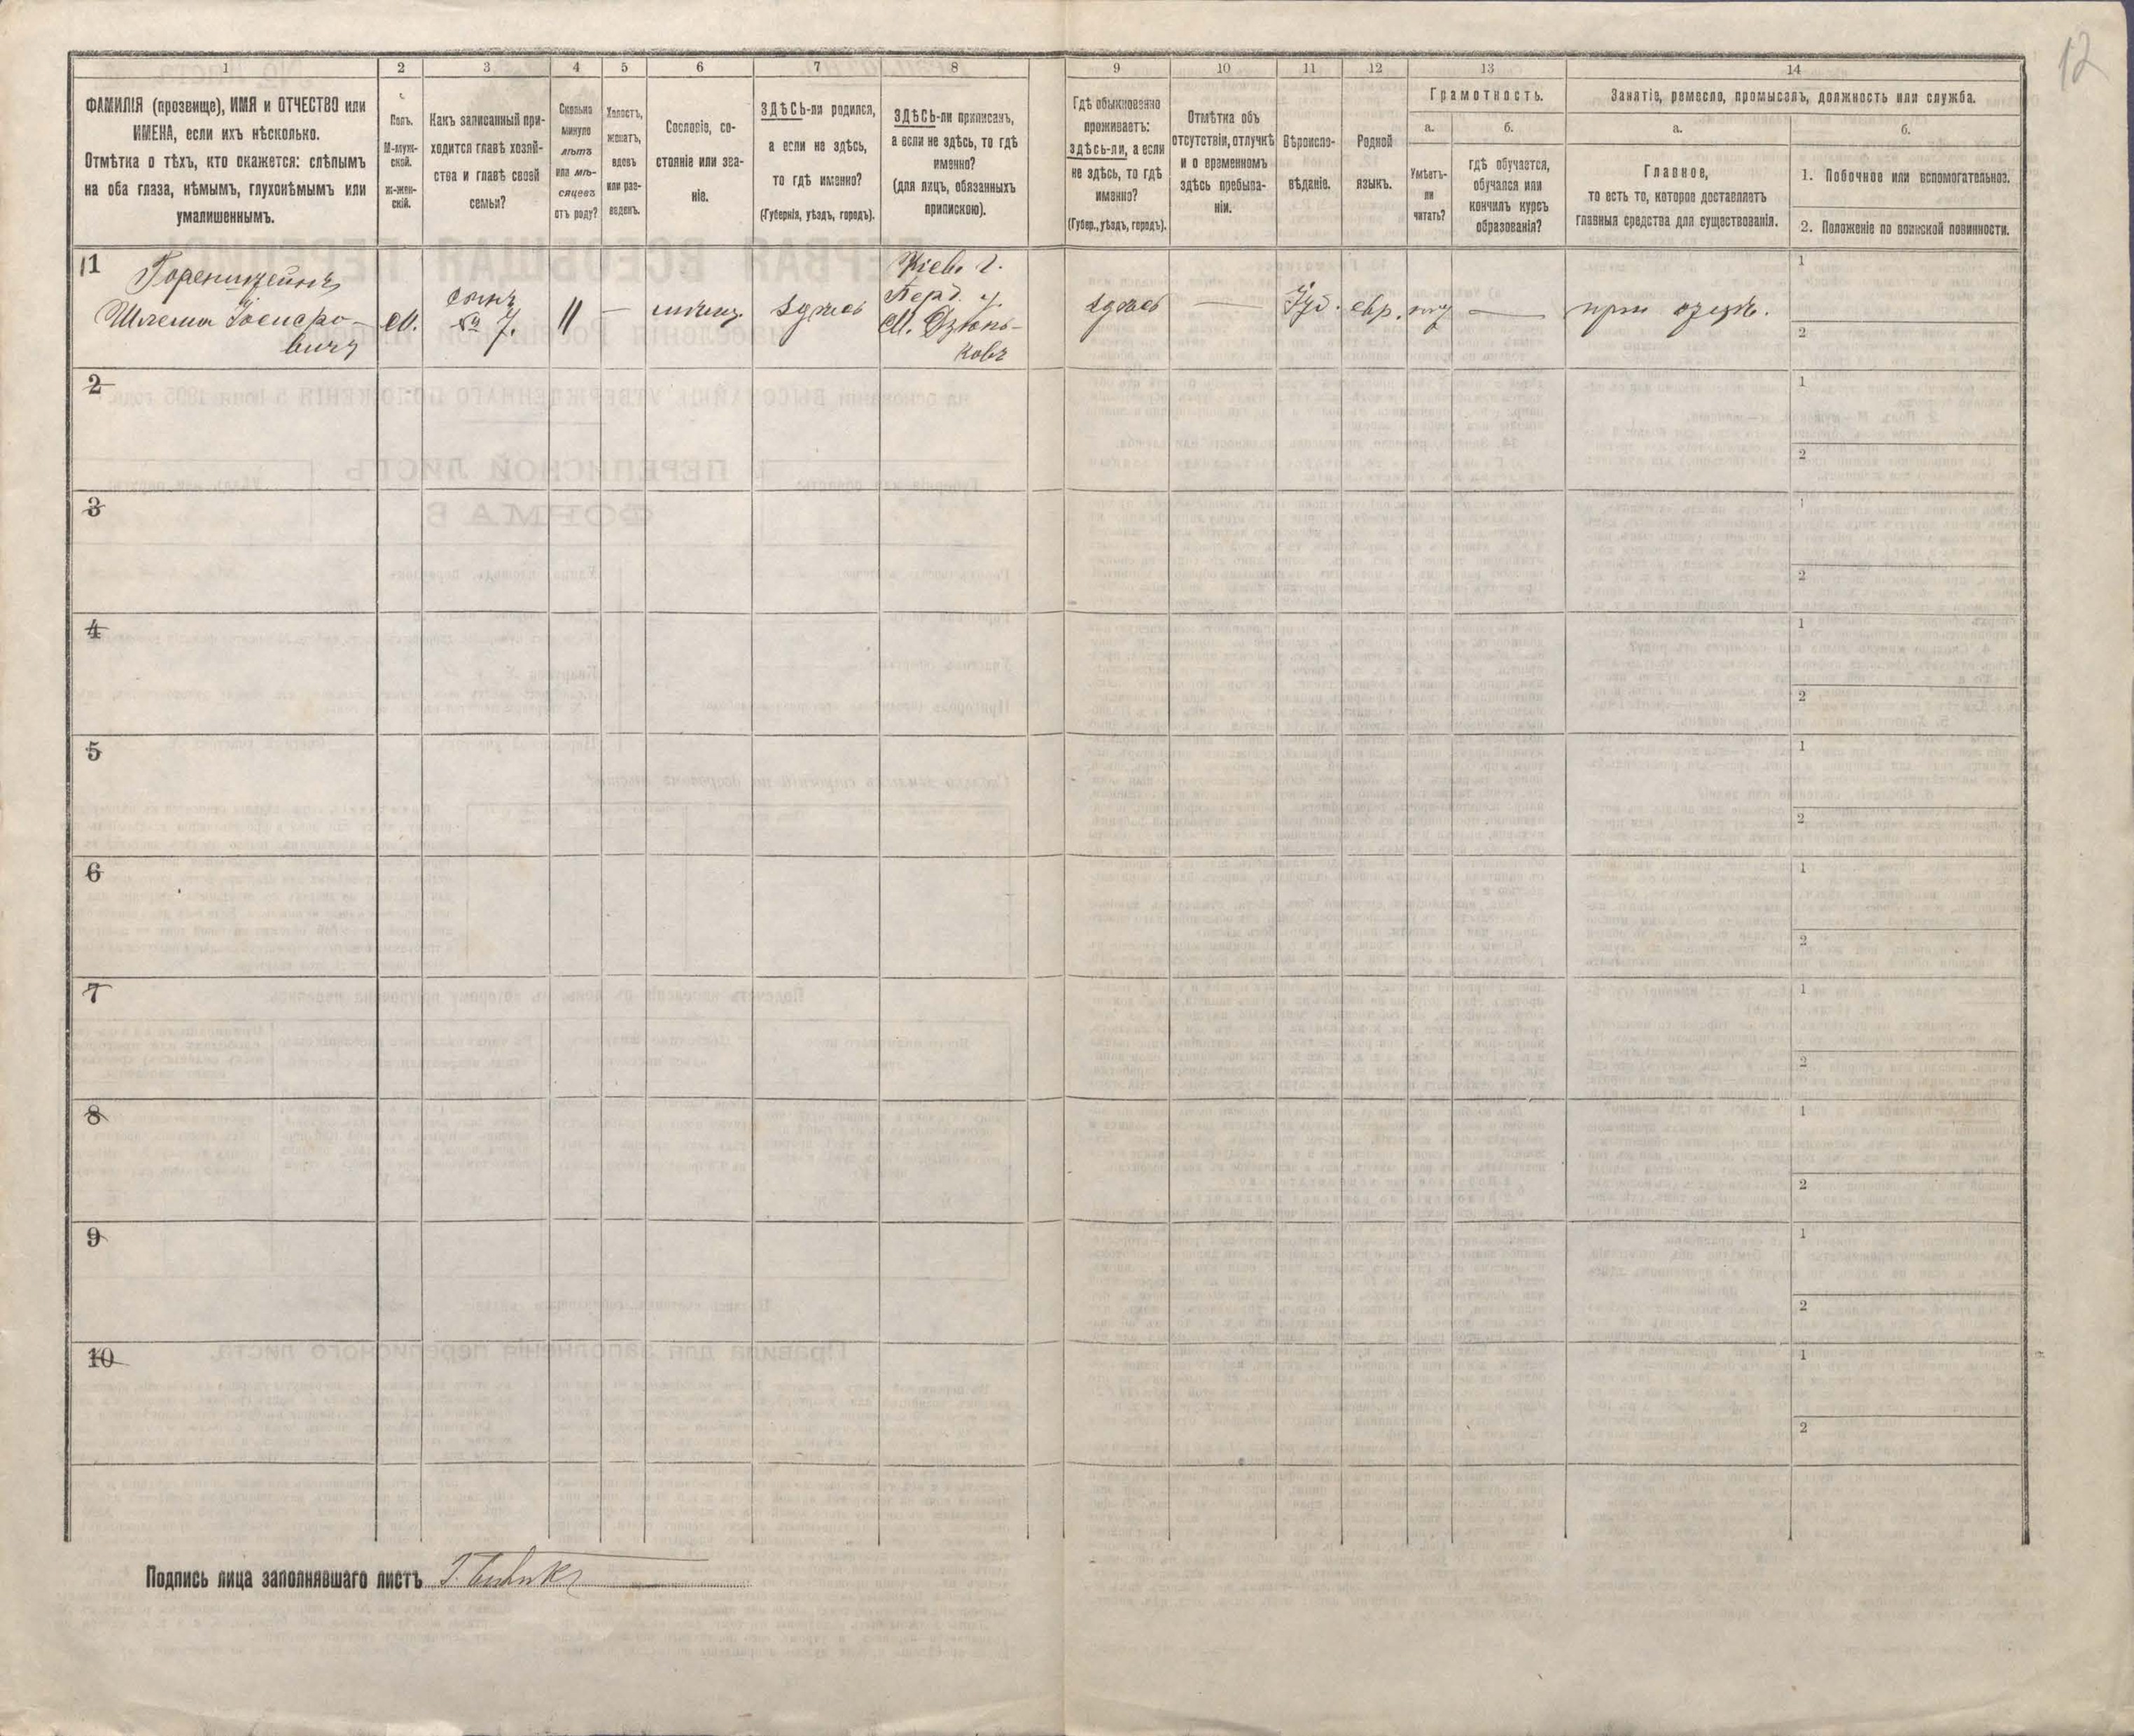 12
1
2
3
4
5
6
7
8
9
10
11
12
13
14
ФАМИЛІЯ (прозвище), ИМЯ и ОТЧЕСТВО или
ИМЕНА, если ихъ нѣсколько.
Отмѣтка о тѣхъ, кто окажется: слѣпымъ
на оба глаза, нѣмымъ, глухонѣмымъ или
умалишеннымъ.
Полъ.
М-муж-
ской.
ж-жен-
скій.
Какъ записанный при-
ходится главѣ хозяй-
ства и главѣ своей
семьи?
Сколько
минуло
лѣтъ
или мѣ-
сяцевъ
отъ роду?
Холостъ,
женатъ,
вдовъ
или раз-
веденъ.
Сословіе, со-
стояніе или зва-
ніе.
ЗДѢСЬ-ли родился,
а если не здѣсь,
то гдѣ именно?
(Губернія, уѣздъ, городъ).
ЗДѢСЬ-ли приписанъ,
а если не здѣсь, то гдѣ
именно?
(для лицъ, обязанныхъ
припискою).
Гдѣ обыкновенно
проживаетъ:
здѣсь-ли, а если
не здѣсь, то гдѣ
именно?
(Губер., уѣздъ, городъ).
Отмѣтка объ
отсутствіи, отлучкѣ
и о временномъ
здѣсь пребыва-
ніи.
Вѣроиспо-
вѣданіе.
Родной
языкъ.
Грамотность.
а.
Умѣетъ-
ли
читать?
б.
гдѣ обучается,
обучался или
кончилъ курсъ
образованія?
Занятіе, ремесло, промыселъ, должность или служба.
а.
Главное,
то есть то, которое доставляетъ
главныя средства для существованія.
б.
1. Побочное или вспомогательное.
2. Положеніе по воинской повинности.
11
Шлема Іосифо-
вичъ
М.
сынъ
№ 7.
11
—
мѣщ.
здѣсь
Кіев. г.
Берд. у.
М. Дзюнь-
ковъ
здѣсь
—
Іуд.
евр.
—
при отцѣ.
1
2
2
1
2
3
1
2
4
1
2
5
1
2
6
1
2
7
1
2
8
1
2
9
1
2
10
1
2
Подпись лица заполнявшаго листъ